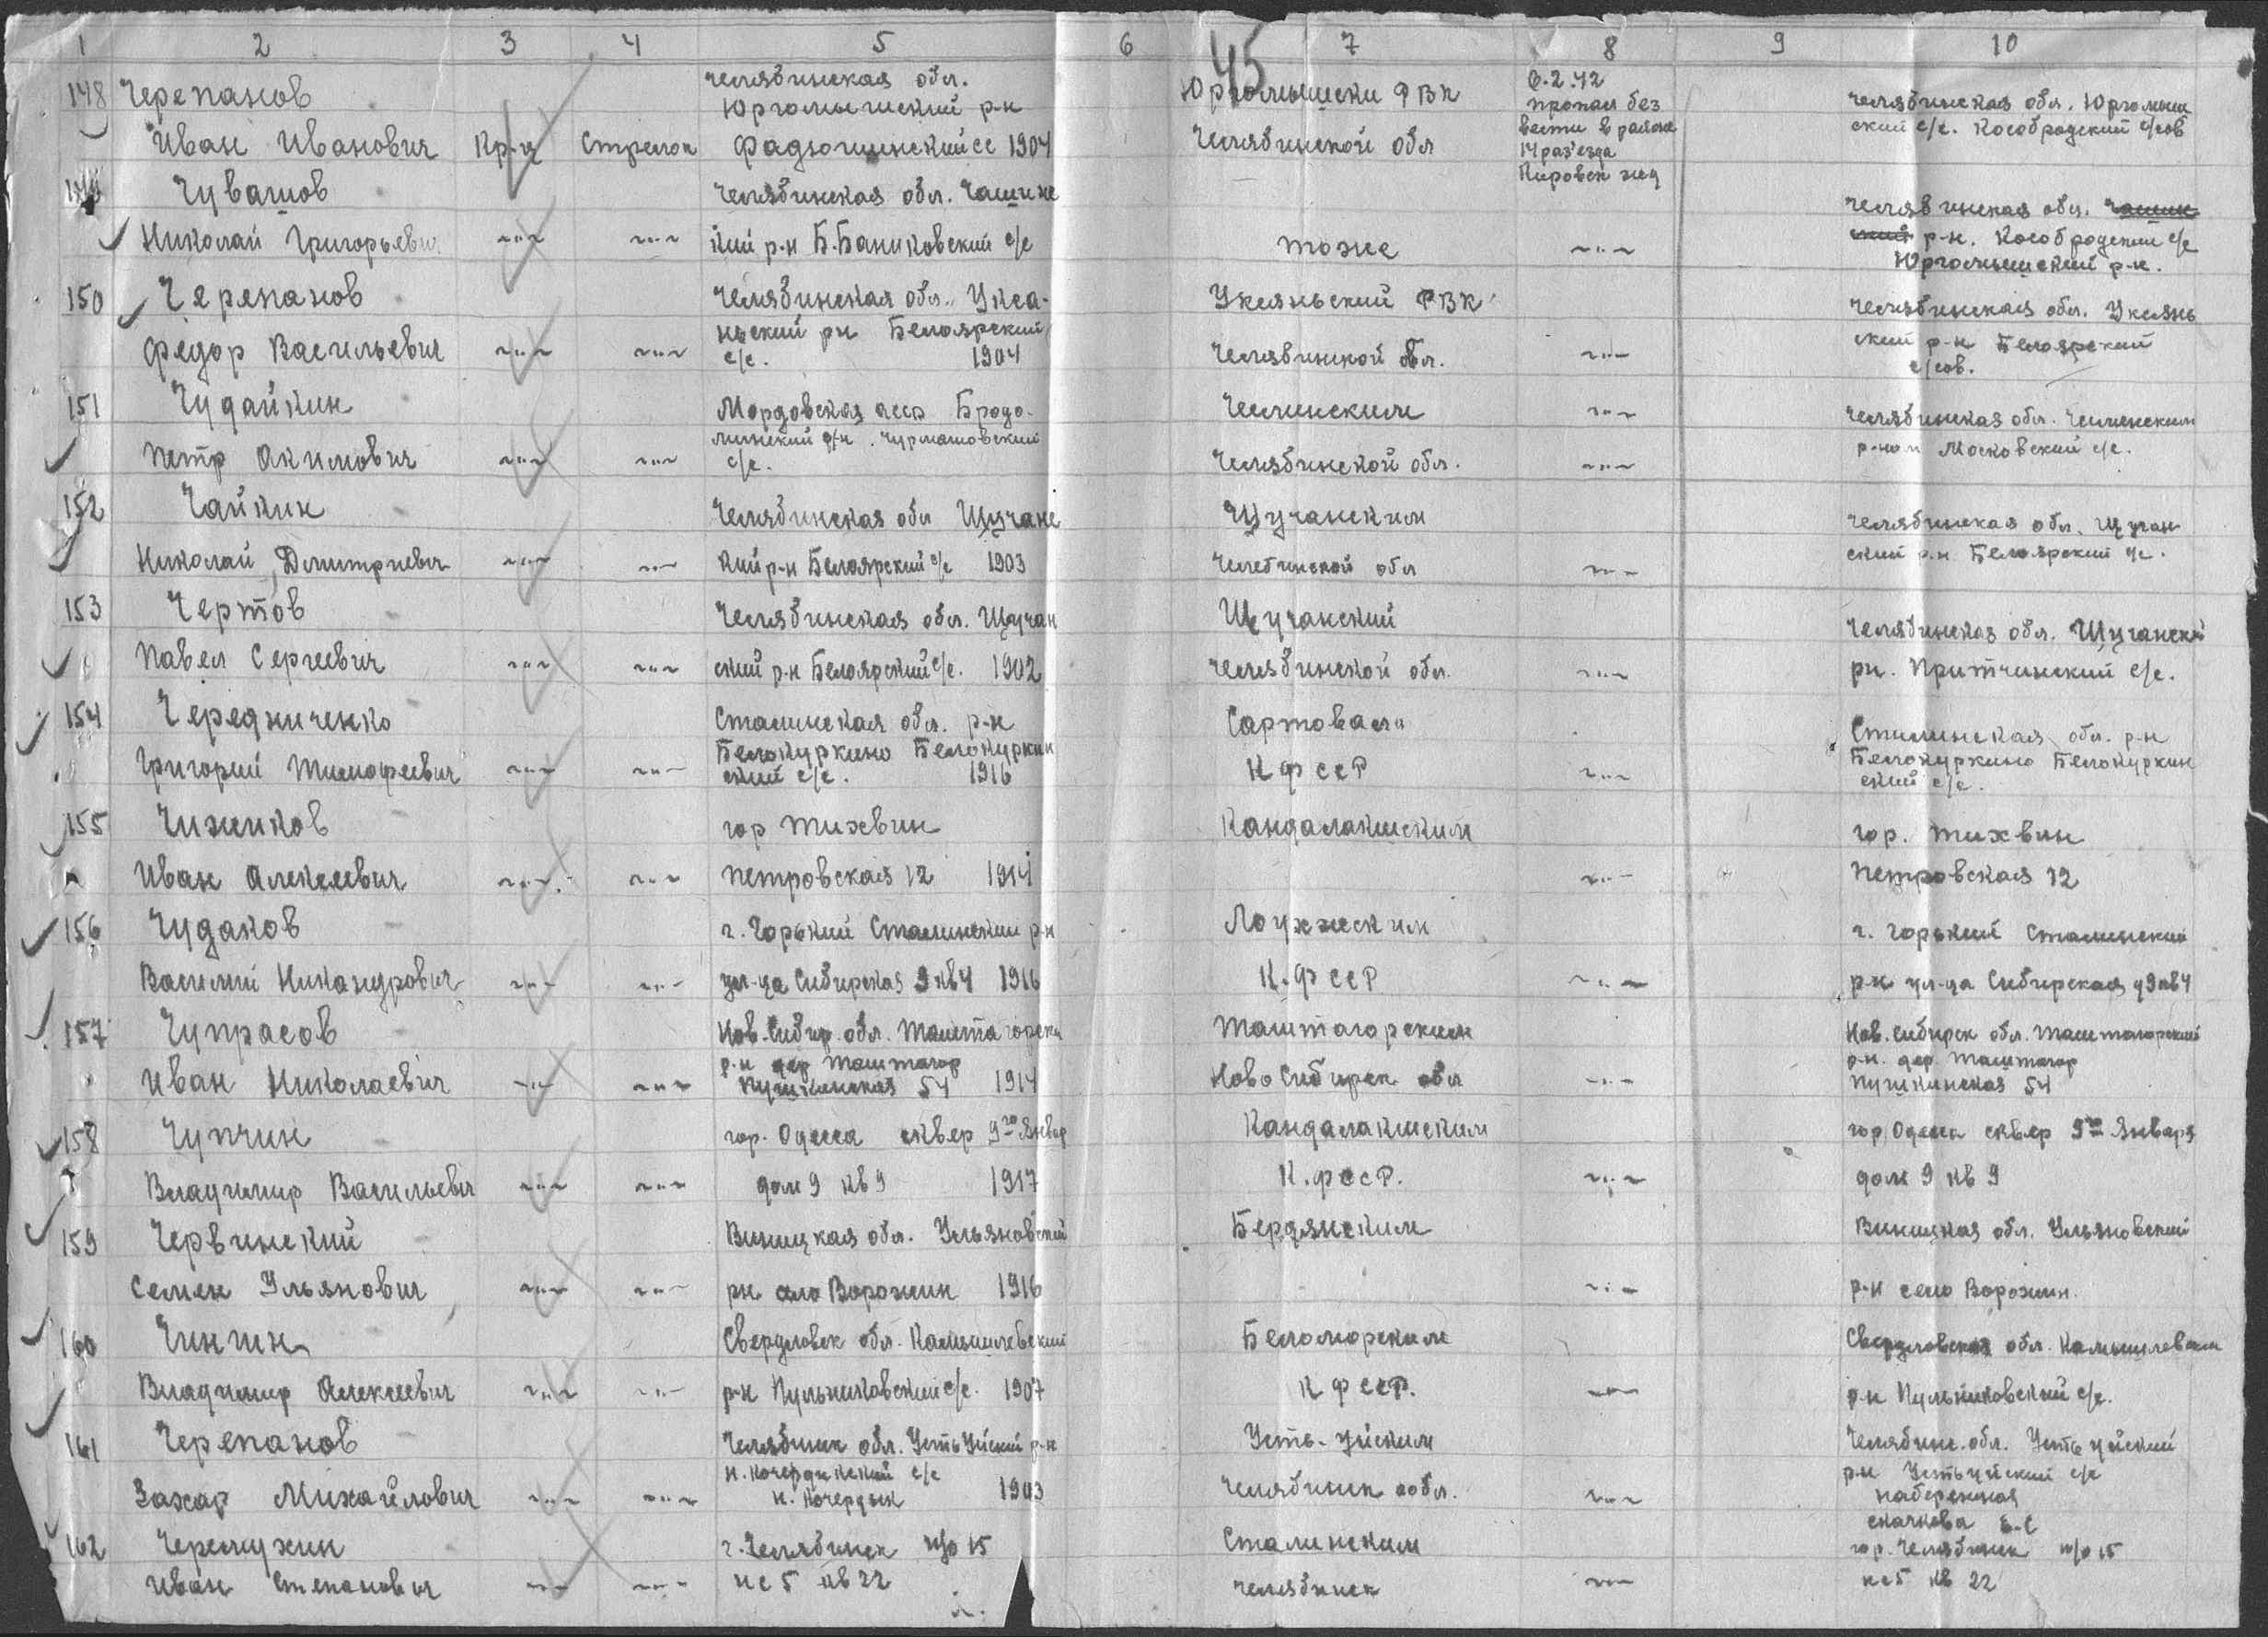 1 2 3 4 5 6 7 8 9 10
45
148 Черепанов
Иван Иванович Кр-ц Стрелок
Челябинская обл.
Юргомышский р-н
1904
Челябинской обл
6.2.42
пропал без
вести в районе
14 раз'езда
Кировск жд
Челябинская обл. Юргомыш
ский с/с. Кособродский с/сов
149 Чувашов
Николай Григорьевич -"- -"-
Челябинская обл. Чашинс
кий р-н Б.Баниковский с/с
тоже -"-
Челябинская обл. Чашин
ский р-н. Кособродский с/с
Юргомышский р-н.
150 Черепанов
Федор Васильевич -"- -"-
Челябинская обл. Укса-
ньский рн Белоярский
с/с. 1904
Уксяньский РВК
Челябинской обл. -"-
Челябинская обл. Уксянь
ский р-н Белоярский
с/сов.
151 Чудайкин
Петр Акимович -"- -"-
Мордовская асср
с/с.
-"-
Челябинской обл. -"-
Челябинская обл.
Московский с/с.
152 Чайкин
Николай Дмитриевич -"- -"-
Челябинская обл Щучанс
кий р-н Белоярский с/с 1903
Щучанским
Челебинской обл -"-
Челябинская обл. Щучан
ский р.н. Белоярский с/с.
153 Чертов
Павел Сергеевич -"- -"-
Челябинская обл. Щучан
ский р-н Белоярский с/с. 1902
Щучанский
Челябинской обл. -"-
Челябинская обл. Щучанский
рн. Притчинский с/с.
154 Чередниченко
Григорий Тимофеевич -"- -"-
Сталинская обл. р-н
Белокуркино Белокуркин
ский с/с. 1916
Сартовала
КфссР -"-
Сталинская обл. р-н
Белокуркино Белокуркин
ский с/с.
155 Чижиков
Иван Алексеевич -"- -"-
гор Тихвин
Петровская 12 1914
Кандалакшским
-"-
гор. Тихвин
Петровская 12
156 Чудаков
Василий Никандрович -"- -"-
г. Горький Сталинский р-н
ул-ца Сибирская 9 кв 4 1916
Лоухжским
К.ФссР -"-
г. Горький Сталинский
р-н ул-ца Сибирская д9 кв 4
157 Чупрасов
Иван Николаевич -"- -"-
Нов.Сибир. обл. Таштагорски
р-н дер Таштагор
Пушкинская 54 1914
Таштагорским
Ново Сибирск обл -"-
Нов.Сибирск обл. Таштагорский
р-н. дер. Таштагор
Пушкинская 54
158 Чупчин
Владимир Васильевич -"- -"-
гор. Одесса сквер 9го Январ
дом 9 кв 9 1917
Кандалакшским
К.фссР. -"-
гор Одесса сквер 9го Января
дом 9 кв 9
159 Червинский
Семен Ульянович -"- -"-
Виницкая обл. Ульяновский
рн село Ворожин 1916
Бердянским
-"-
Виницкая обл. Ульяновский
р-н село Ворожин.
160 Чингин
Владимир Алексеевич -"- -"-
Свердловск обл. Камышлевский
р-н Кульниковский с/с. 1907
Беломорским
К фссР. -"-
Свердловская обл. Камышлевски
р-н Кульниковский с/с.
161 Черепанов
Захар Михайлович -"- -"-
Челябинск обл. Усть Уйский р-н
н. Кочердыкский с/с
н. Кочердык 1903
Усть-Уйским
Челябинск обл. -"-
Челябинс. обл. Усть уйский
р-н Устьуйский с/с
набережная
Скачкова Е-С
162 Черемухин
Иван Степанович -"- -"-
г. Челябинск п/о 15
нс5 кв 22
Сталинским
Челябинск -"-
гор. Челябинск п/о 15
нс5 кв 22